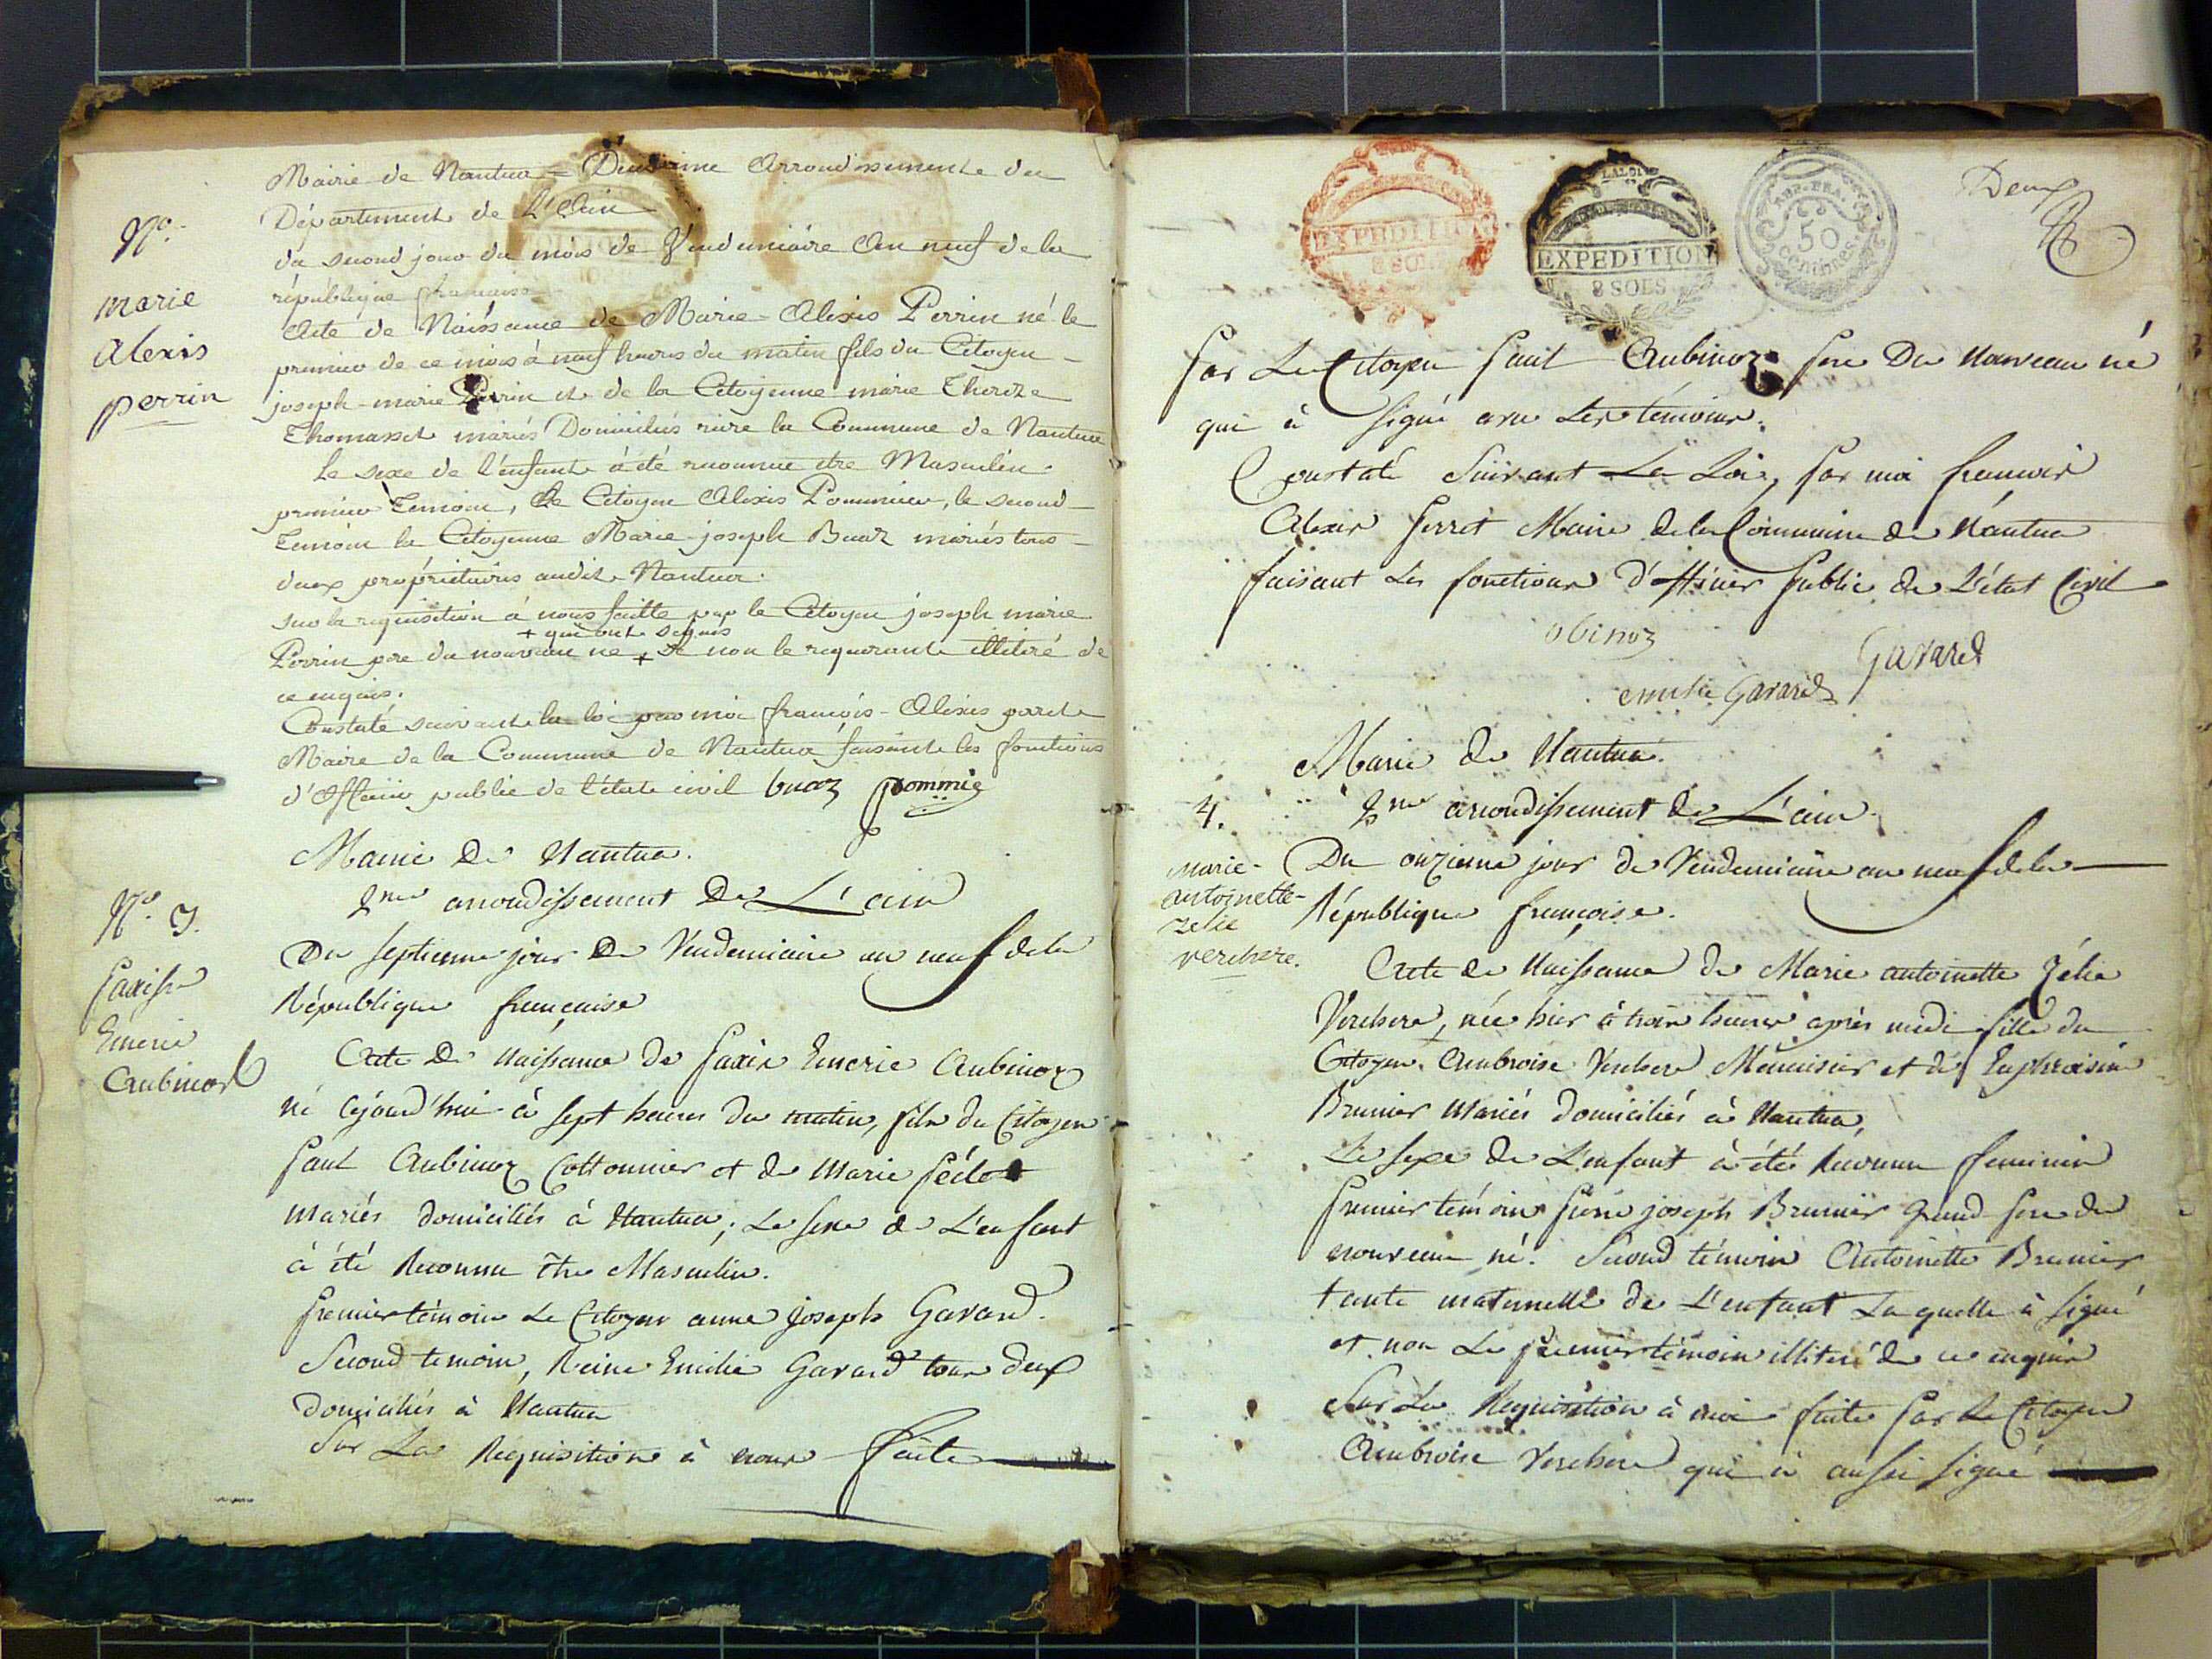 Mairie de Nantua = Deuxieme Arrondissement du
Département de L'Ain
du second jour du mois de Vendemiaire An neuf de la
république francaise
Nº.
marie
alexis
perrin
Acte de Naissance de Marie-Alexis Perrin né le
premier de ce mois à neuf heures du matin fils du Citoyen
joseph-marie Perrin et de la Citoyenne marie Thereze
Thomasset mariés Domiciliés rière la Commune de Nantua
Le sexe de l'enfant à été reconnue etre Masculin.
premier Temoin, le Citoyen Alexis Pommier, le second
Temoin la Citoyenne Marie-joseph Buaz mariés tous
deux propriétaires audit Nantua.
sur la requisition à nous faitte par le Citoyen joseph marie
+ qui ont signés
Perrin pere du nouveau né + et non le requerant illiteré de
ce enquis.
Constaté suivant la loi par moi françois-Alexis perret
Maire de la Commune de Nantua faisante les fonctions
d'Officier public de l'état civil buaz pommié
Mairie de Nantua.
2me arrondissement De L'ain
Nº. 3.
Emerie
Aubinoz
Du septieme jour De Vendemiaire an neuf de la
République française
Acte De Naissance de Emerie Aubinoz
né cejourd'hui à sept heures du matin, fils du Citoyen
paul Aubinoz Cottonnier et de Marie
mariés domiciliés à Nantua; Le sexe de L'enfant
à été Reconnu être Masculin.
premier témoin Le Citoyen anne joseph Gavard.
Second temoin, Reine Emilie Gavard tous deux
domiciliés à Nantua
Sur La Réquisition à nous faite
EXPEDITION
8 SOLS
LA LOI
EXPEDITION
8 SOLS
REP. FRA.
50
centimes
Deux
par Le Citoyen paul Aubinoz pere Du nouveau né
qui à signé avec Les témoins.
Constaté suivant La Loi, par moi francois
Alexis perret Maire de la Commune de Nantua
faisant les fonctions d'officier public de L'état Civil
obinoz
Gavard
emilie Gavard
Mairie de Nantua.
2me arrondissement de L'ain.
4.
marie-
antoinette-
zelie
verchere.
Du onzieme jour de Vendemiaire an neuf de la
République françoise.
Acte de Naissance de Marie antoinette Zélie
Verchere, née hier à trois heures après midi fille du
Citoyen Ambroise Verchere Menuisier et de Euphroisine
Brunier Mariés domiciliés à Nantua,
Le sexe de L'enfant à été Reconnu feminin
premier témoin pierre joseph Brunier grand pere du
nouveau né. Second témoin Antoinette Brunier
tante maternelle de L'enfant Laquelle à signé
et non Le premier témoin illiteré de ce enquis
Sur La Requisition à moi faite par Le Citoyen
Ambroise Verchere qui à aussi signé